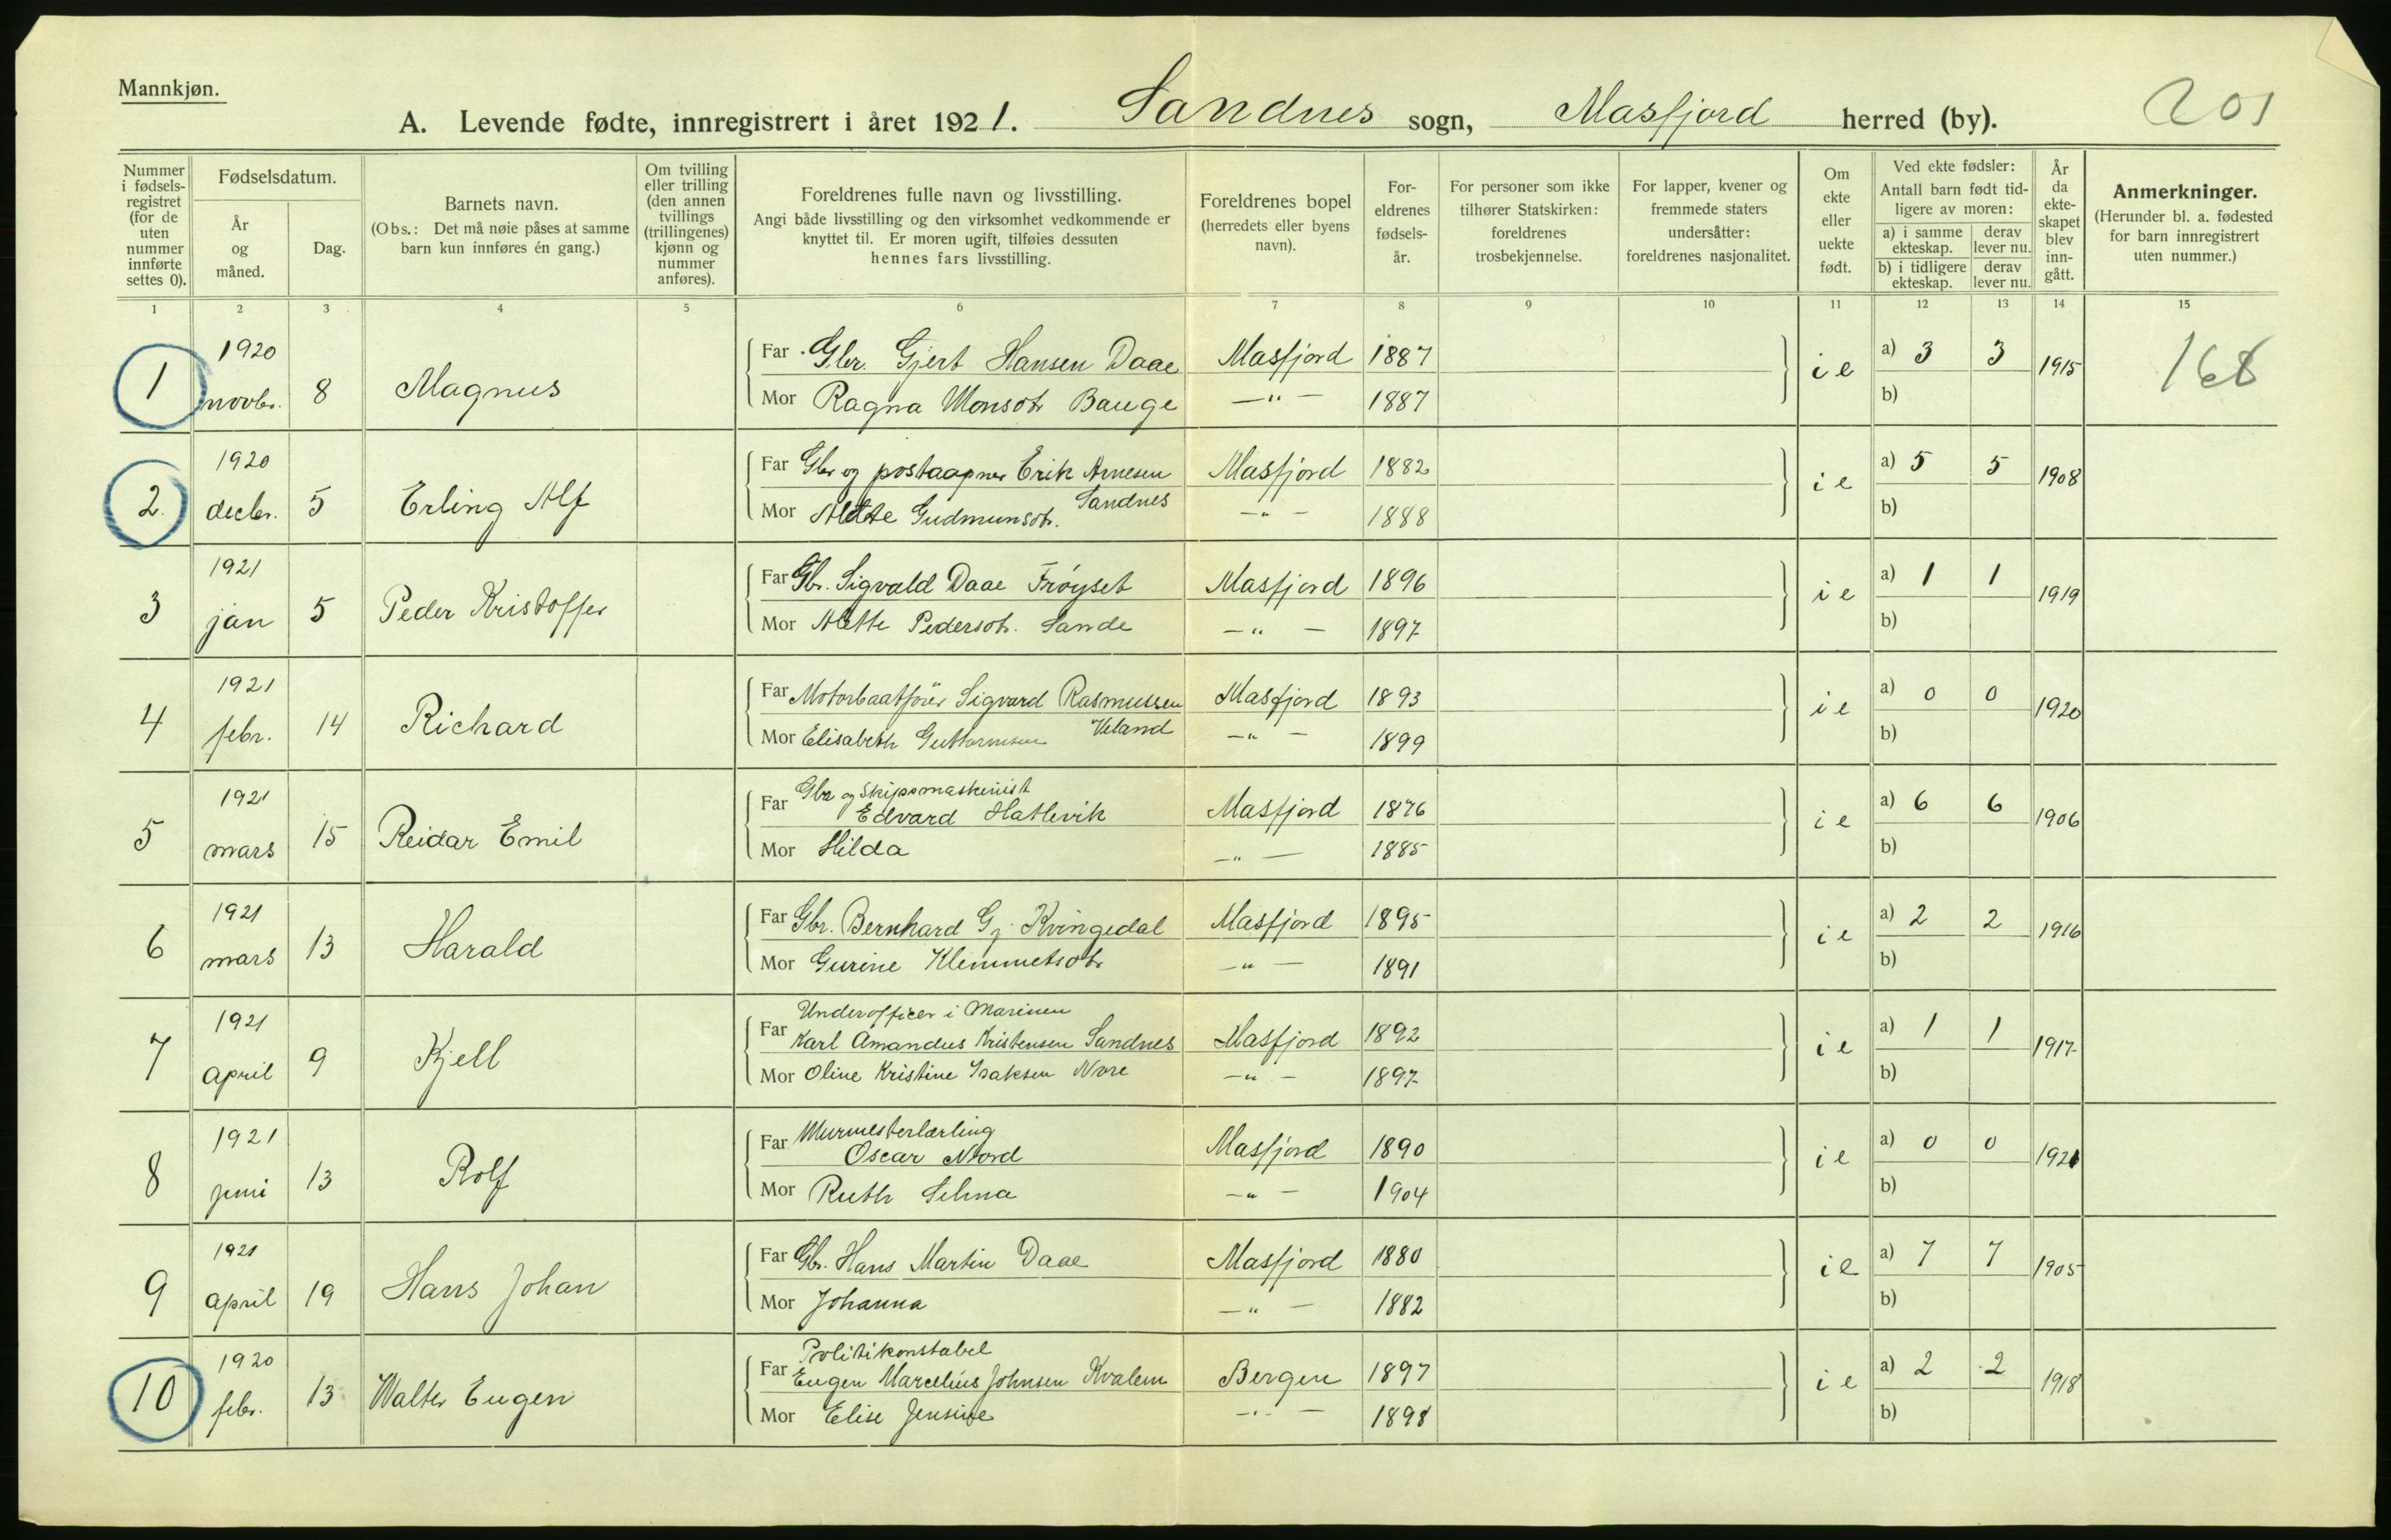 Mannkjøn.
A. Levende fødte, innregistrert i året 1921. Sandnes sogn, Masfjord herred (by).
201
Nummer i fødsels-registret (for de uten nummer innførte settes 0).
Fødselsdatum.
År og måned.
Dag.
Barnets navn.
(Obs.: Det må nøie påses at samme barn kun innføres én gang.)
Om tvilling eller trilling (den annen tvillings (trillingenes) kjønn og nummer anføres).
Foreldrenes fulle navn og livsstilling.
Angi både livsstilling og den virksomhet vedkommende er knyttet til. Er moren ugift, tilføies dessuten hennes fars livsstilling.
Foreldrenes bopel (herredets eller byens navn).
For-eldrenes fødsels-år.
For personer som ikke tilhører Statskirken: foreldrenes trosbekjennelse.
For lapper, kvener og fremmede staters undersåtter: foreldrenes nasjonalitet.
Om ekte eller uekte født.
Ved ekte fødsler:
Antall barn født tid-ligere av moren:
a) i samme ekteskap. derav lever nu.
b) i tidligere ekteskap. derav lever nu.
År da ekte-skapet blev inn-gått.
Anmerkninger.
(Herunder bl. a. fødested for barn innregistrert uten nummer.)
1 2 3 4 5 6 7 8 9 10 11 12 13 14 15
1 1920 novbr. 8 Magnus Far Gbr. Gjert Hansen Daae Masfjord 1887 i e a) 3 3 1915 168
Mor Ragna Monsdtr Bauge — " — 1887 b)
2. 1920 decbr. 5 Erling Alf Far Gbr og postaapner Erik Arnesen Sandnes Masfjord 1882 i e a) 5 5 1908
Mor Alette Gudmunsdtr. — " — 1888 b)
3 1921 jan 5 Peder Kristoffer Far Gbr. Sigvald Daae Frøyset Masfjord 1896 i e a) 1 1 1919
Mor Alette Pedersdtr. Sande — " — 1897 b)
4 1921 febr. 14 Richard Far Motorbaatfører Sigvard Rasmussen Masfjord 1893 i e a) 0 0 1920
Mor Elisabeth Guttormsen — " — 1899 b)
5 1921 mars 15 Reidar Emil Far Gbr og Skipsmaskinist
Edvard Hatlevik Masfjord 1876 i e a) 6 6 1906
Mor Hilda — " — 1885 b)
6 1921 mars 13 Harald Far Gbr. Bernhard Gj. Kvingedal Masfjord 1895 i e a) 2 2 1916
Mor Gurine Klemmetsdtr — " — 1891 b)
7 1921 april 9 Kjell Far Underofficer i Marinen
Karl Amandus Kristensen Sandnes Masfjord 1892 i e a) 1 1 1917
Mor Oline Kristine Isaksen — " — 1897 b)
8 1921 juni 13 Rolf Far Murmesterlærling
Oscar Nord Masfjord 1890 i e a) 0 0 1921
Mor Ruth Selma — " — 1904 b)
9 1921 april 19 Hans Johan Far Gbr. Hans Martin Daae Masfjord 1880 i e a) 7 7 1905
Mor Johanna — " — 1882 b)
10 1920 febr. 13 Walter Eugen Far Politikonstabel
Eugen Marcelius Johnsen Kvalem Bergen 1897 i e a) 2 2 1918
Mor Elise Jensine — " — 1898 b)